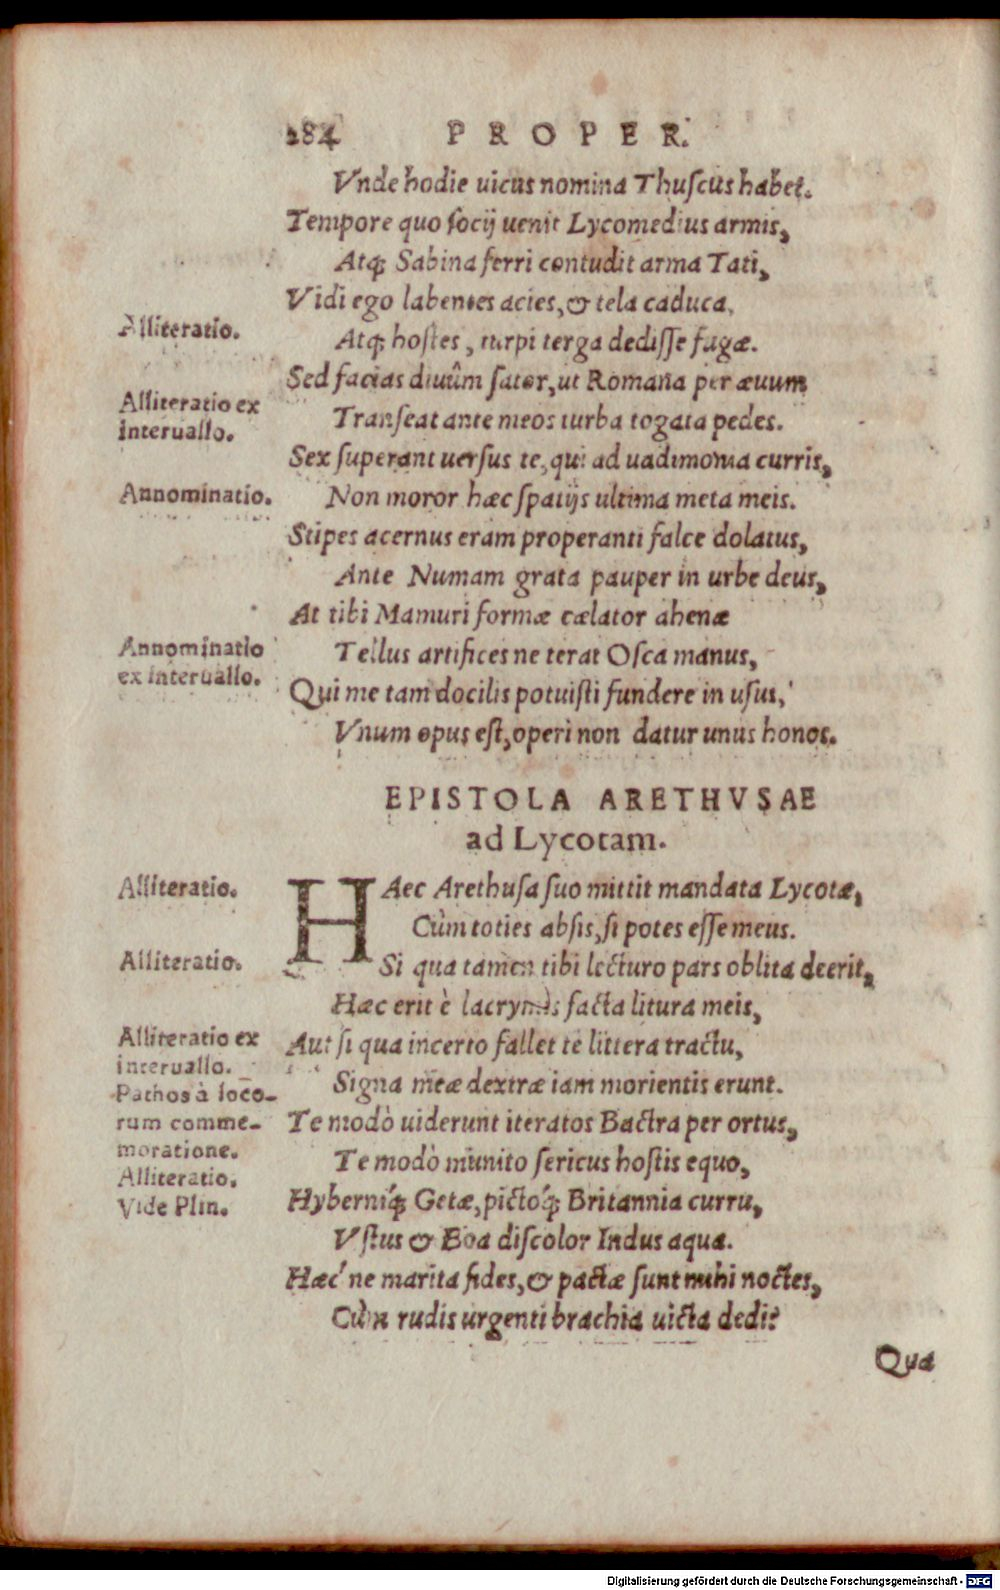 284 PROPER.
Vnde hodie uicus nomina Thuſcus habet.
Tempore quo ſocij uenit Lycomedius armis,
Atq; Sabina ferri contudit arma Tati,
Vidi ego labentes acies, & tela caduca,
Alliteratio.
Atq; hoſtes, turpi terga dediſſe fugæ.
Sed facias diuûm ſator, ut Romana per æuum
Alliteratio ex
interuallo.
Tranſeat ante meos turba togata pedes.
Sex ſuperant uerſus te, qui ad uadimonia curris,
Annominatio.
Non moror hæc ſpatijs ultima meta meis.
Stipes acernus eram properanti falce dolatus,
Ante Numam grata pauper in urbe deus,
At tibi Mamuri formæ cælator ahenæ
Annominatio
ex interuallo.
Tellus artifices ne terat Oſca manus,
Qui me tam docilis potuiſti fundere in uſus,
Vnum opus eſt, operi non datur unus honos.
EPISTOLA ARETHVSAE
ad Lycotam.
Alliteratio.
HAec Arethuſa ſuo mittit mandata Lycotæ,
Cùm toties abſis, ſi potes eſſe meus.
Alliteratio.
Si qua tamen tibi lecturo pars oblita deerit,
Hæc erit è lacrymis facta litura meis,
Alliteratio ex
interuallo.
Aut ſi qua incerto fallet te littera tractu,
Signa meæ dextræ iam morientis erunt.
Pathos à loco-
rum comme-
moratione.
Te modò uiderunt iteratos Bactra per ortus,
Te modò munito ſericus hoſtis equo,
Alliteratio.
Vide Plin.
Hyberniq́; Getæ, pictoq́; Britannia curru,
Vſtus & Eoa diſcolor Indus aqua.
Hæc'ne marita fides, & pactæ ſunt mihi noctes,
Cùm rudis urgenti brachia uicta dedi?
Qua
Digitalisierung gefördert durch die Deutsche Forschungsgemeinschaft - DFG